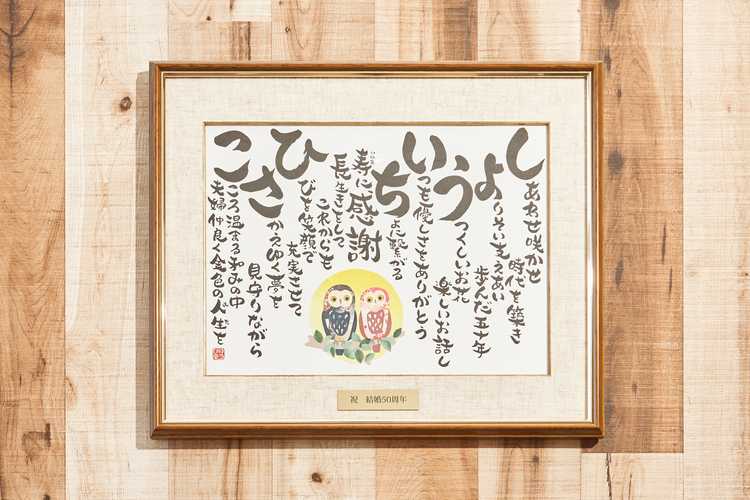 しあわせ咲かせ
時代を築き
よりそい支えあい
歩んだ五十年
うつくしいお花
楽しいお話し
いつも優しさをありがとう
ちよに繋がる
寿に感謝
長生きをして
これからも
ひびを笑顔で
充実させて
さかえゆく夢を
見守りながら
こころ温まる和みの中
夫婦仲良く金色の人生を
祝 結婚50周年